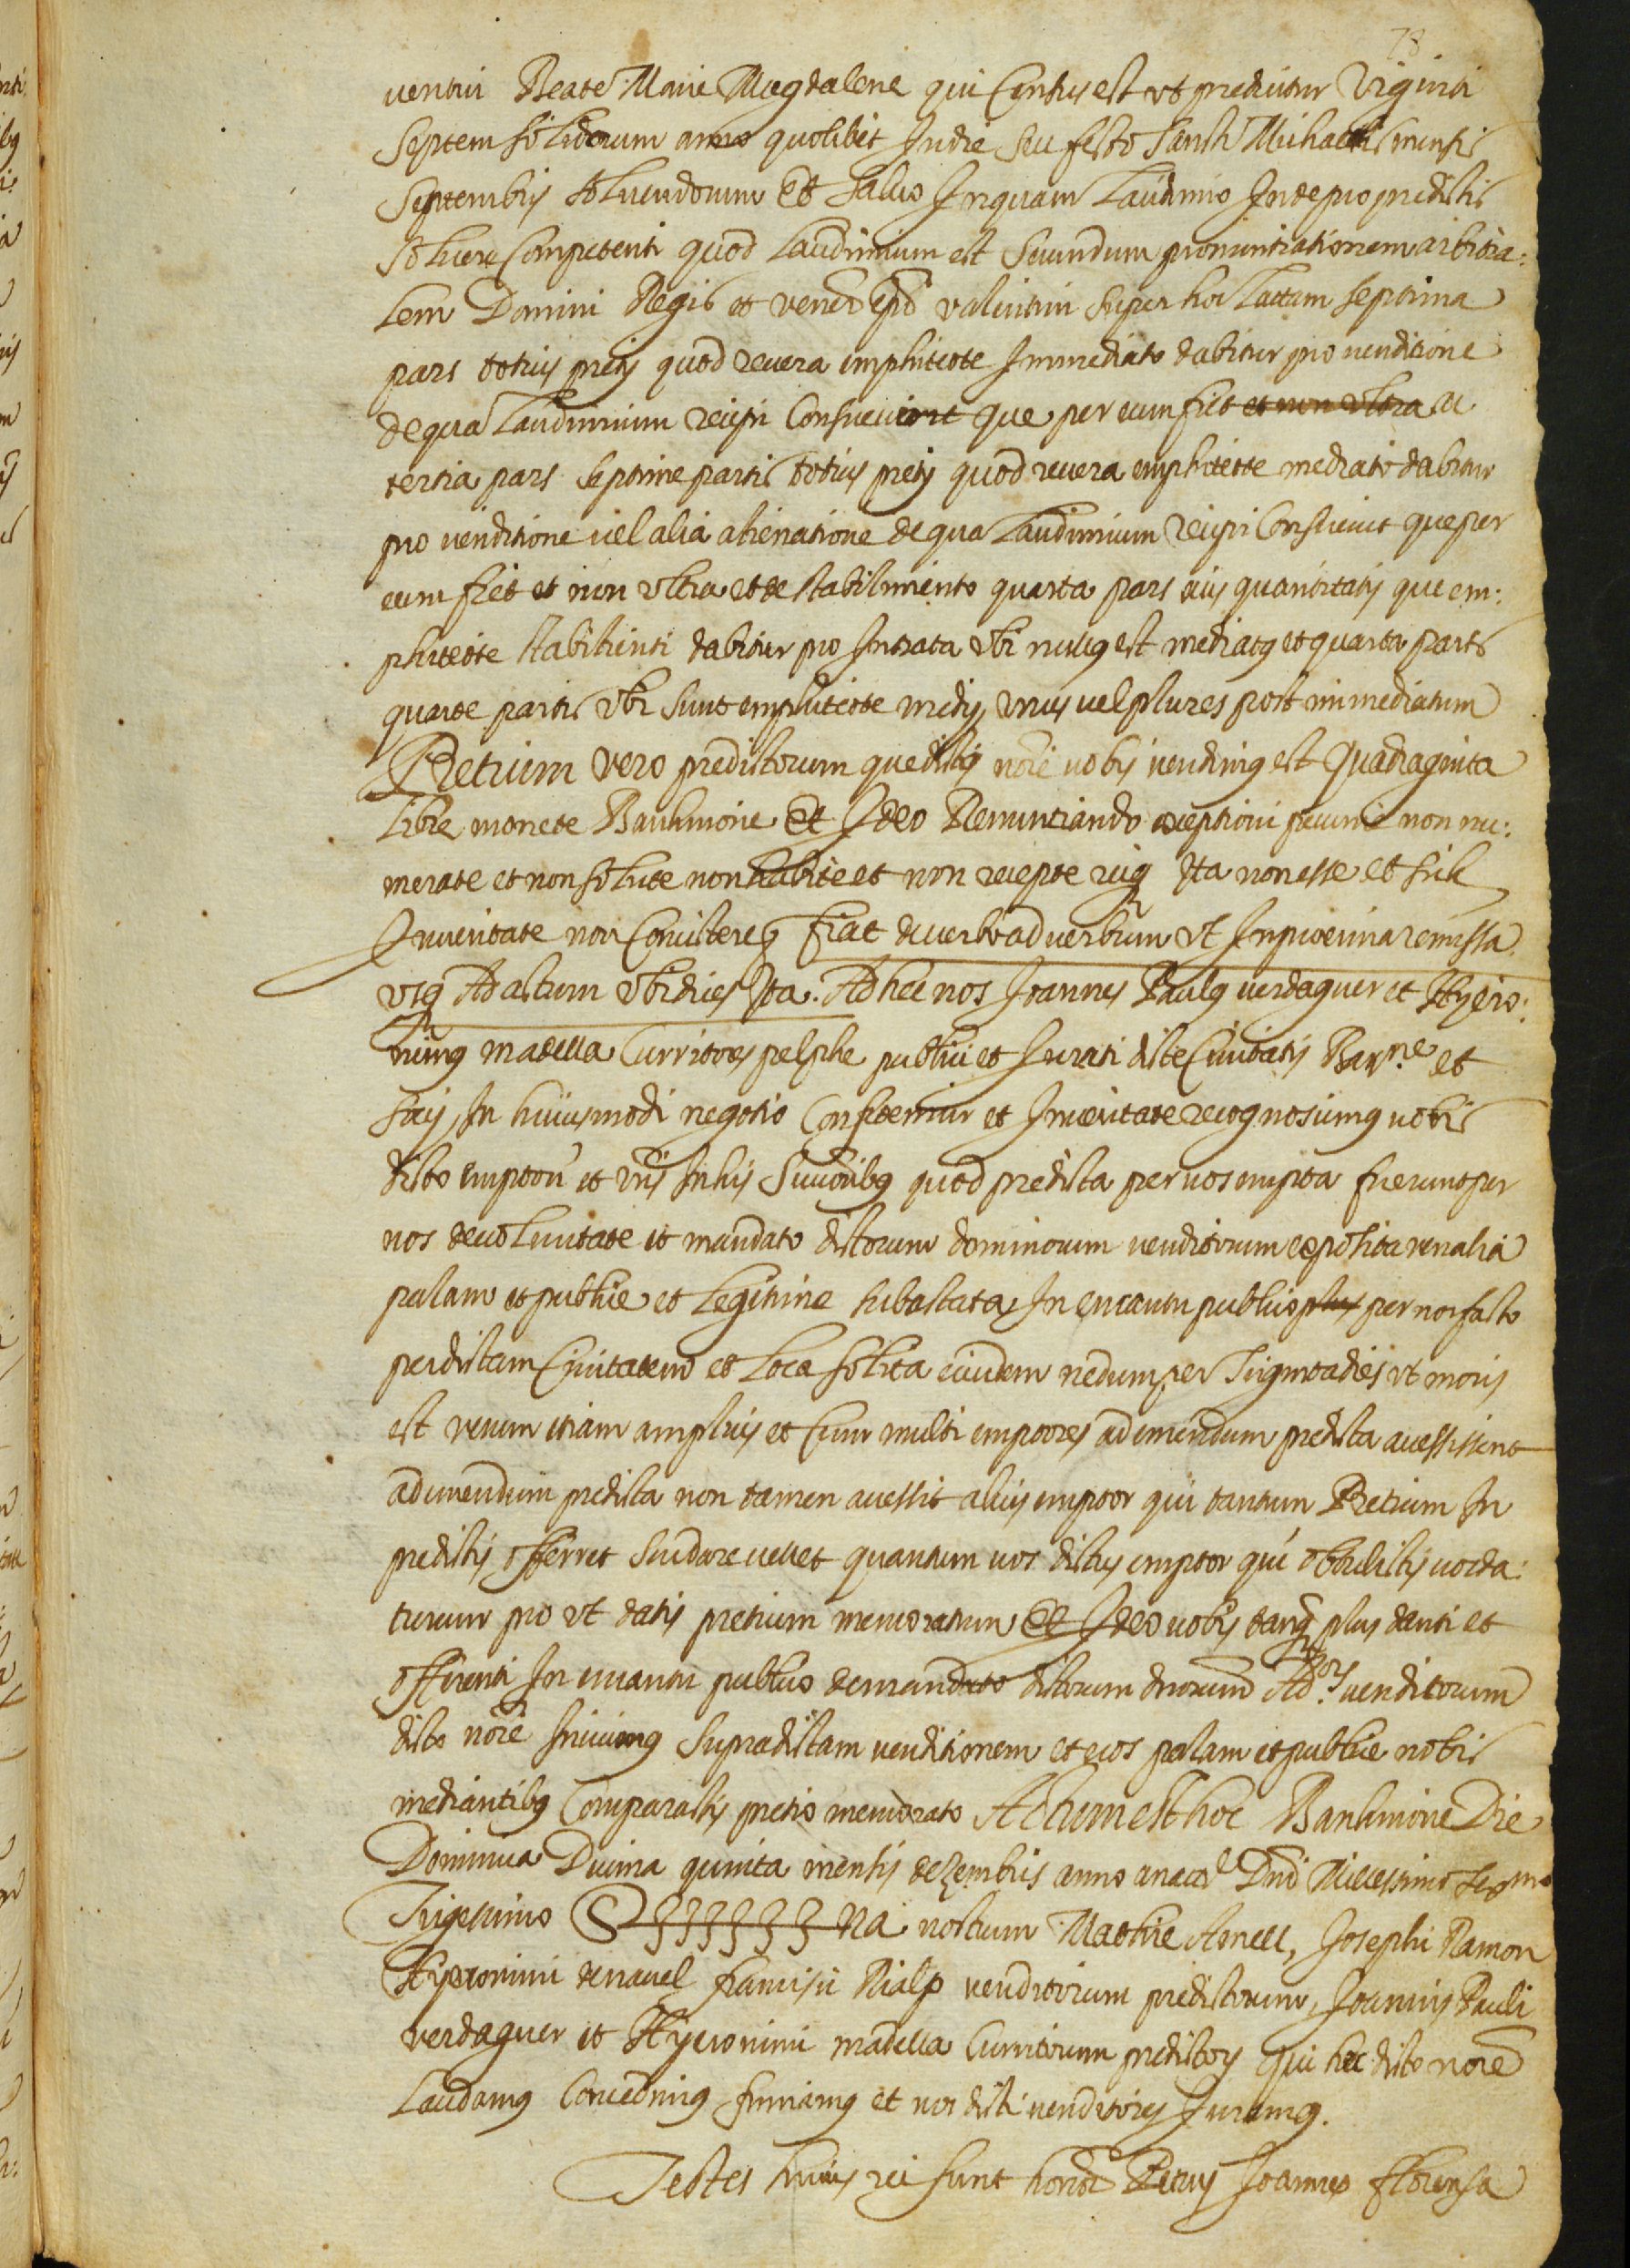 78
ventui Beate Marie Magdalene qui Census est ut predicitur Viginti
Septem solidorum anno quolibet In die seu festo Sancti Michaelis mensis
Septembris solvendorum Et Salvo Inquam Laudimio Inde pro predictis
Solvere Competenti quod Laudimium est Secundum pronuntiationem arbitra:
lem Domini Regis et venerd epi valentini super hoc Lattam septima
pars totius pretij quod revera emphiteote Immediato dabitur pro venditione
de qua Laudimium recipi Consuevit que per eum fiet et non ultra
tertia pars septime partis totius pretij quod revera emphiteote mediato dabitur
pro venditione vel alia alienatione de qua Laudimium recipi Consuevit que per
eum fiet et non ultra et de stabilimento quarta pars eius quantitatis que em:
phiteote stabilienti dabitur pro Intrata ubi nullus est mediatus et quarta pars
quarte partis ubi sunt emphiteote medij unus vel plures post immediatum
Pretium vero predictorum que dictis noie vobis vendimus est Quadraginta
Libre monete Barchinone Et Ideo Renuntiando exceptioni pecunie non nu:
merate et non solute non habite et non recepte reiq Ita non esse et sich
In veritate non Consistereq fiat de verbo ad verbum ut In proxima remissa
usq Ad actum ubi dicit Ita. Ad hec nos Joannes Paulus verdaguer et Hyero:
nimus madella Curritores pelphe publici et Jurati dicte Civitatis Barne et
socij In huiusmodi negotio Confitemur et In veritate recognoscimus vobis
dicto emptori et vris In his Successoribus quod predicta per vos empta fuerunt per
nos de voluntate et mandato dictorum dominorum venditorum exposita venalia
palam et publice et Legitime subastata In encantu publico plus per nos facto
per dictam Civitatem et Loca solita eiusdem nedum per Triginta dies ut moris
est verum etiam amplius et Cum multi emptores ad emendum predicta accessissent
ad emendum predicta non tamen accessit alius emptor qui tantum Pretium In
predictis offerret seu dare vellet quantum vos dictus emptor qui obtulistis vos da:
turum pro ut datis pretium memoratum Et Ideo vobis tanq plus danti et
offerenti In encantu publico de mandato dictorum dnorum Adors venditorum
dicto noie fecimus Supradictam venditionem et eos palam et publice nobis
mediantibus Comparastis pretio memorato Actum est hoc Barchinone Die
Dominica Decima quinta mensis dezembris anno a natd Dnd Millessimo Sexmo
Trigessimo Sig33333na nostrum Mathie Amell, Josephi Ramon
Hyeronimi denavel francisci Rialp venditorum predictorum, Joannis Pauli
verdaguer et Hyeronimi madella Curritorum predictors qui hec dicto noie
Laudamus Concedimus firmamus et nos dicti venditores Juramus.
Testes huius rei sunt honor Petrus Joannes florensa